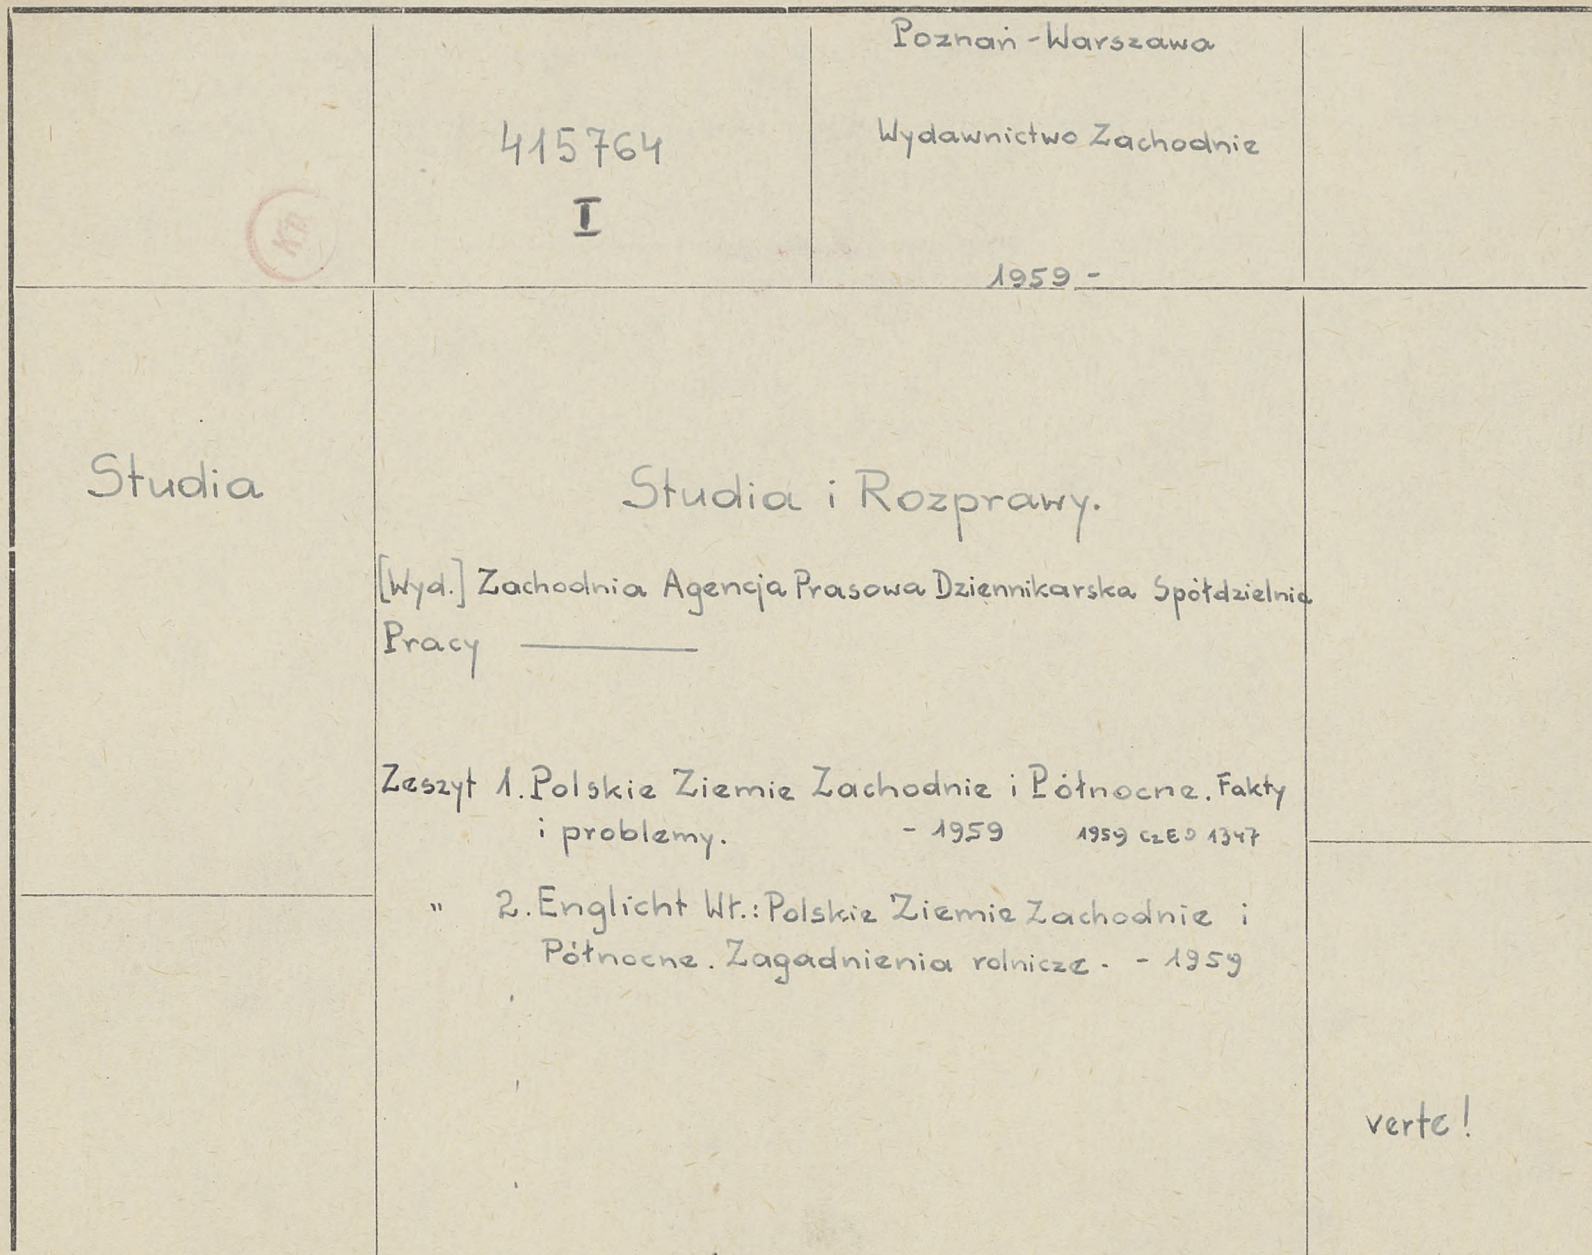 Poznań - Warszawa
415764
Wydawnictwo Zachodnie
I
1959 -
Studia
Studia i Rozprawy.
[Wyd.] Zachodnia Agencja Prasowa Dziennikarska Spółdzielnia
Pracy ———
Zeszyt 1. Polskie Ziemie Zachodnie i Północne. Fakty
i problemy. - 1959 1959 1347
" 2. Englicht Wł.: Polskie Ziemie Zachodnie i
Północne. Zagadnienia rolnicze. - 1959
verte!